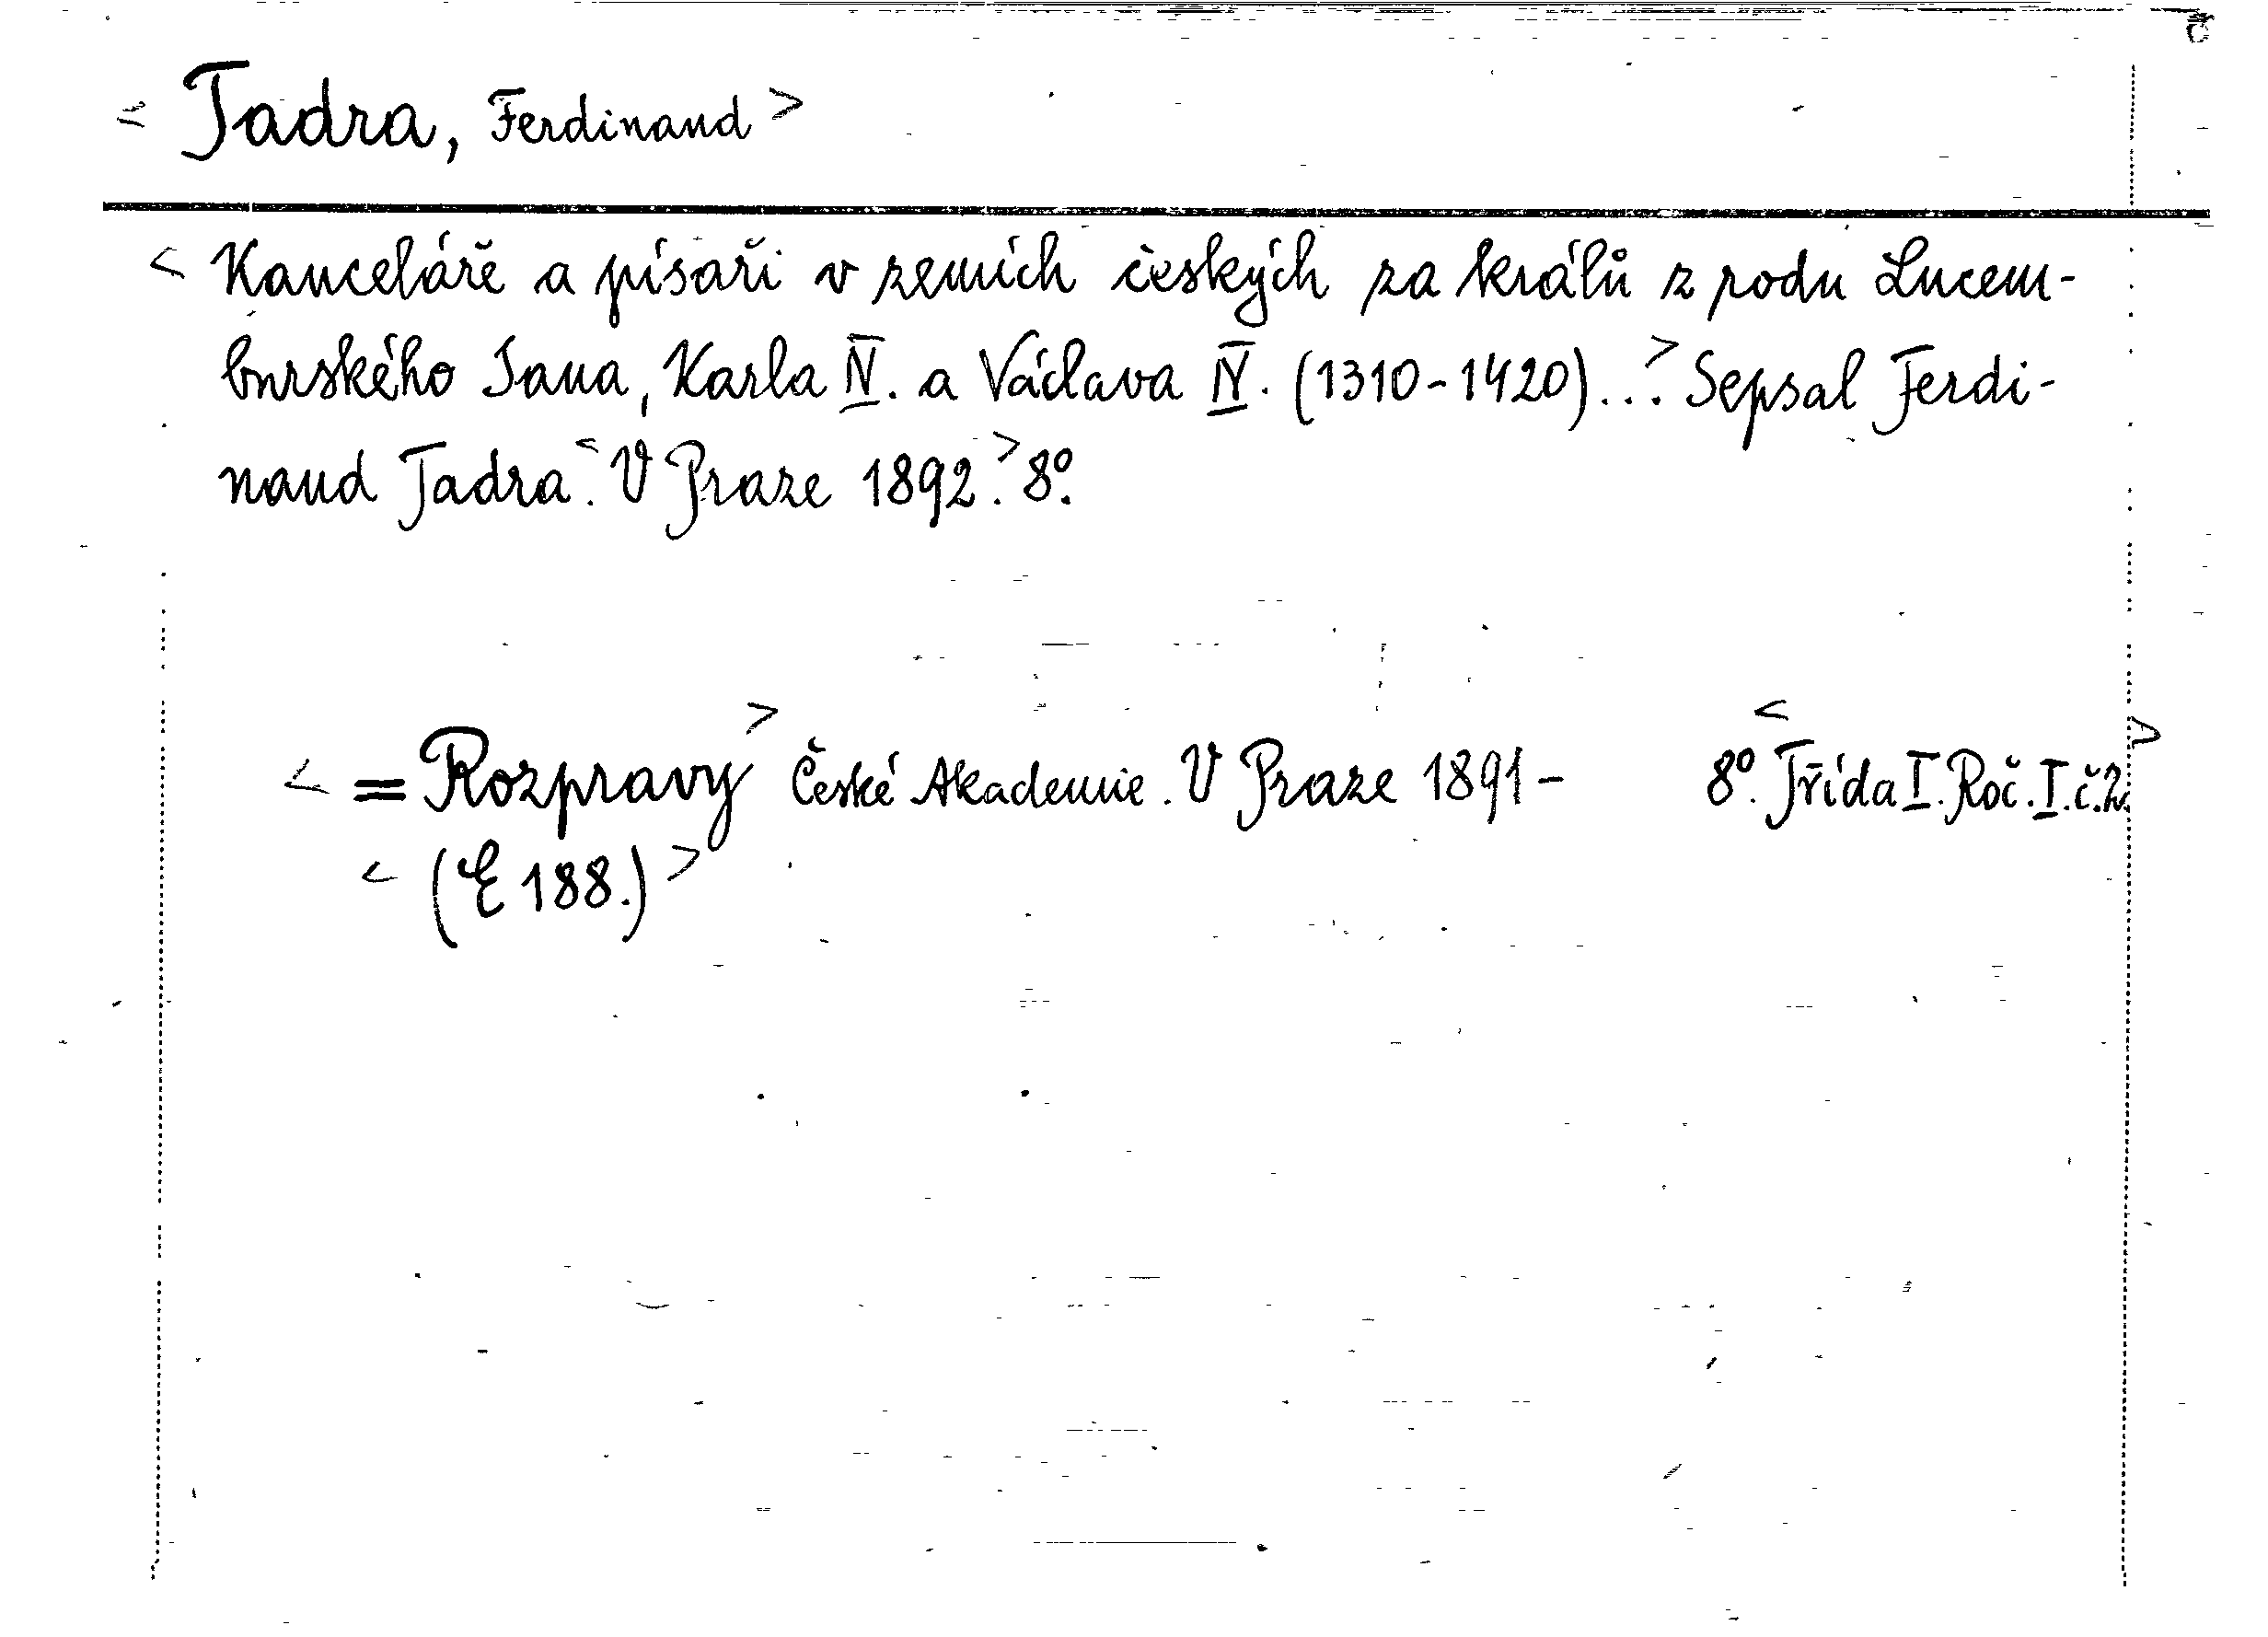 < Tadra, Ferdinand >
< Kanceláře a písaři v zemích českých za králů z rodu Lucem-
burského Jana, Karla IV. a Václava IV. (1310-1420)...> Sepsal Ferdi-
nand Tadra.< V Praze 1892.> 8º.
< = Rozpravy > České Akademie. V Praze 1891- 8º. < Třída I. Roč. I. č. 2. >
< (E 188.) >